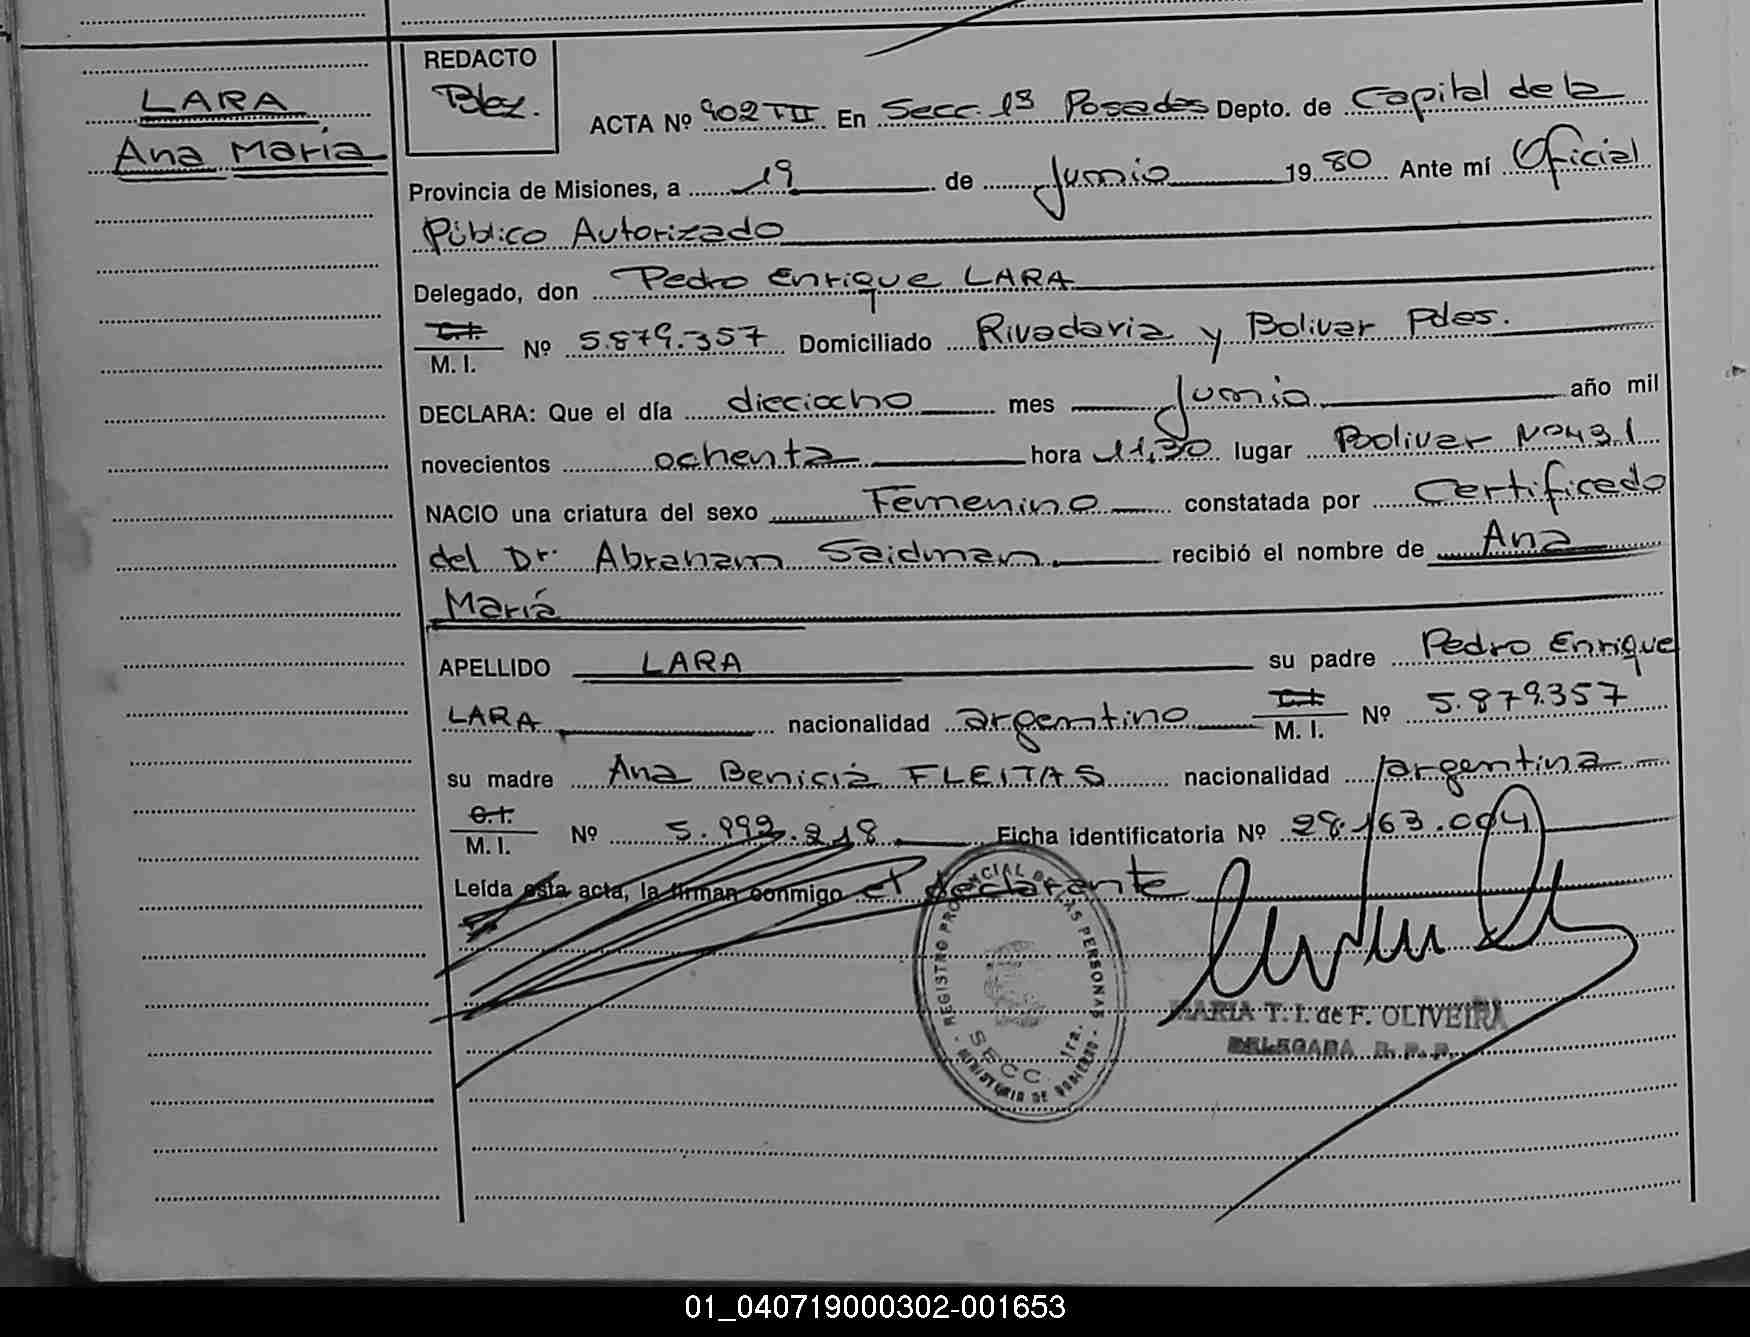 LARA
Ana María
REDACTO
ACTA Nº 902 TII En Secc. 1ª Posadas Depto. de Capital de la
Provincia de Misiones, a 19 de Junio 19 80 Ante mí Oficial
Público Autorizado
Delegado, don Pedro Enrique LARA
C.I.
M. I. Nº 5.879.357 Domiciliado Rivadavia y Bolivar Pdas.
DECLARA: Que el día dieciocho mes Junio año mil
novecientos ochenta hora 11,30 lugar Bolivar Nº431
NACIO una criatura del sexo Femenino constatada por Certificado
del Dr. Abraham Saidman recibió el nombre de Ana
María
APELLIDO LARA su padre Pedro Enrique
LARA nacionalidad argentino C.I. M. I. Nº 5.879.357
su madre Ana Benicia FLEITAS nacionalidad argentina
C.I.
M. I. Nº 5.992.218 Ficha identificatoria Nº 28.163.004
Leída esta acta, la firman conmigo el declarante
REGISTRO PROVINCIAL DE LAS PERSONAS
SECC. 1ra.
MINISTERIO DE GOBIERNO
MARIA T. I. de F. OLIVEIRA
DELEGADA R. P. P.
01_040719000302-001653